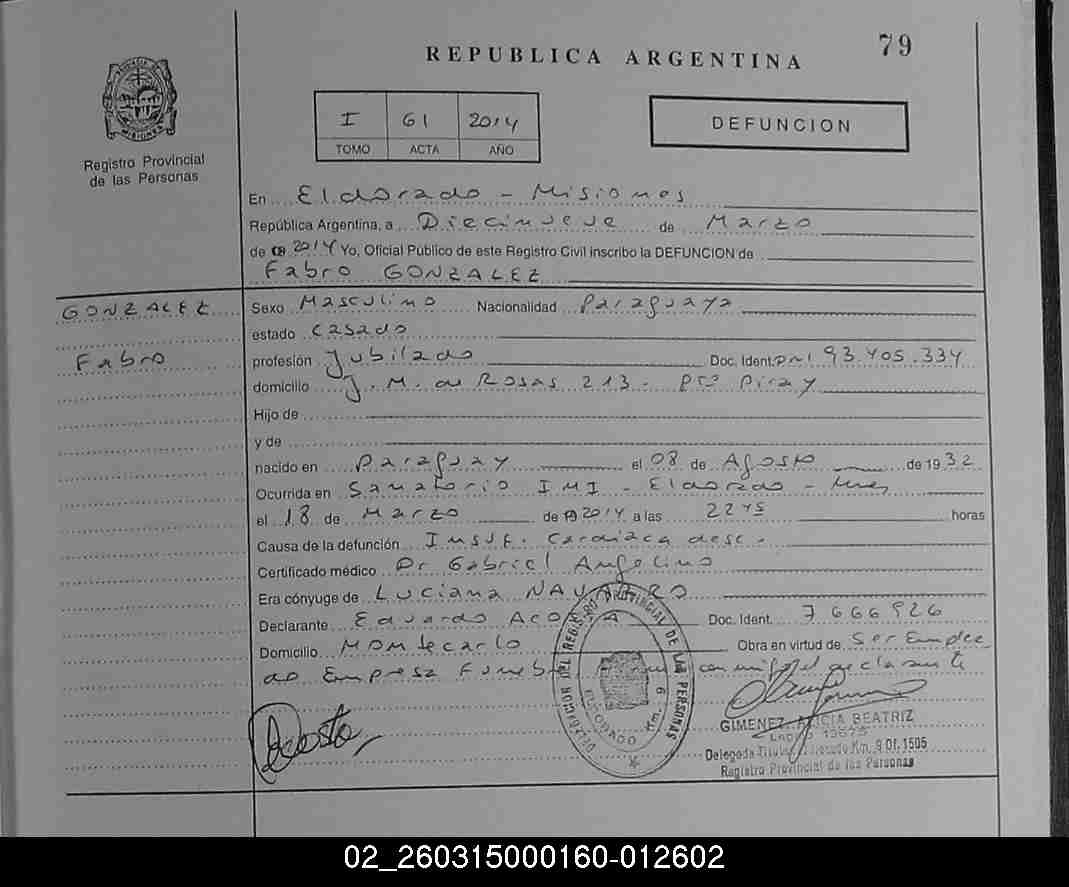 79
REPUBLICA ARGENTINA
PROVINCIA DE
MISIONES
Registro Provincial
de las Personas
I 61 2014
TOMO ACTA AÑO
DEFUNCION
En Eldorado - Misiones
República Argentina, a Diecinueve de Marzo
de 2014 Yo, Oficial Público de este Registro Civil inscribo la DEFUNCION de
Fabro GONZALEZ
GONZALEZ
Fabro
Sexo Masculino Nacionalidad Paraguaya
estado Casado
profesión Jubilado Doc. Ident. DNI 93.405.334
domicilio J. M. de Rosas 213 - Pto Piray
Hijo de
y de
nacido en Paraguay el 08 de Agosto de 1932
Ocurrida en Sanatorio IMI - Eldorado - Mnes
el 18 de Marzo de 2014 a las 22 45 horas
Causa de la defunción Insuf. Cardiaca desc.
Certificado médico Dr Gabriel Angelino
Era cónyuge de Luciana NAVARRO
Declarante Eduardo ACOSTA Doc. Ident. 7666926
Domicilio Montecarlo Obra en virtud de Ser Emplea
do Empresa Funebre conmigo el declarante
DELEGACION DEL REGISTRO PROVINCIAL DE LAS PERSONAS
ELDORADO Km. 9
Acosta
GIMENEZ, ALICIA BEATRIZ
Delegada Titular Eldorado Km. 9 Of. 1505
Registro Provincial de las Personas
02_260315000160-012602